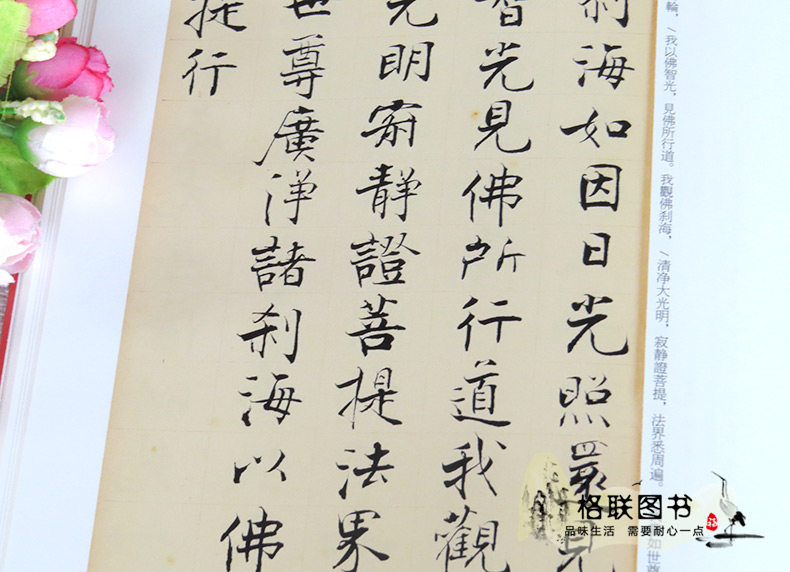 輪，\我以佛智光，見佛所行道。我觀佛刹海，\清净大光明，寂静證菩提，法界悉周遍。
如世尊
刹海如因日光照還見
智光見佛所行道我觀
光明寂静證菩提法界
世尊廣淨諸刹海以佛
提行
格联图书
品味生活 需要耐心一点